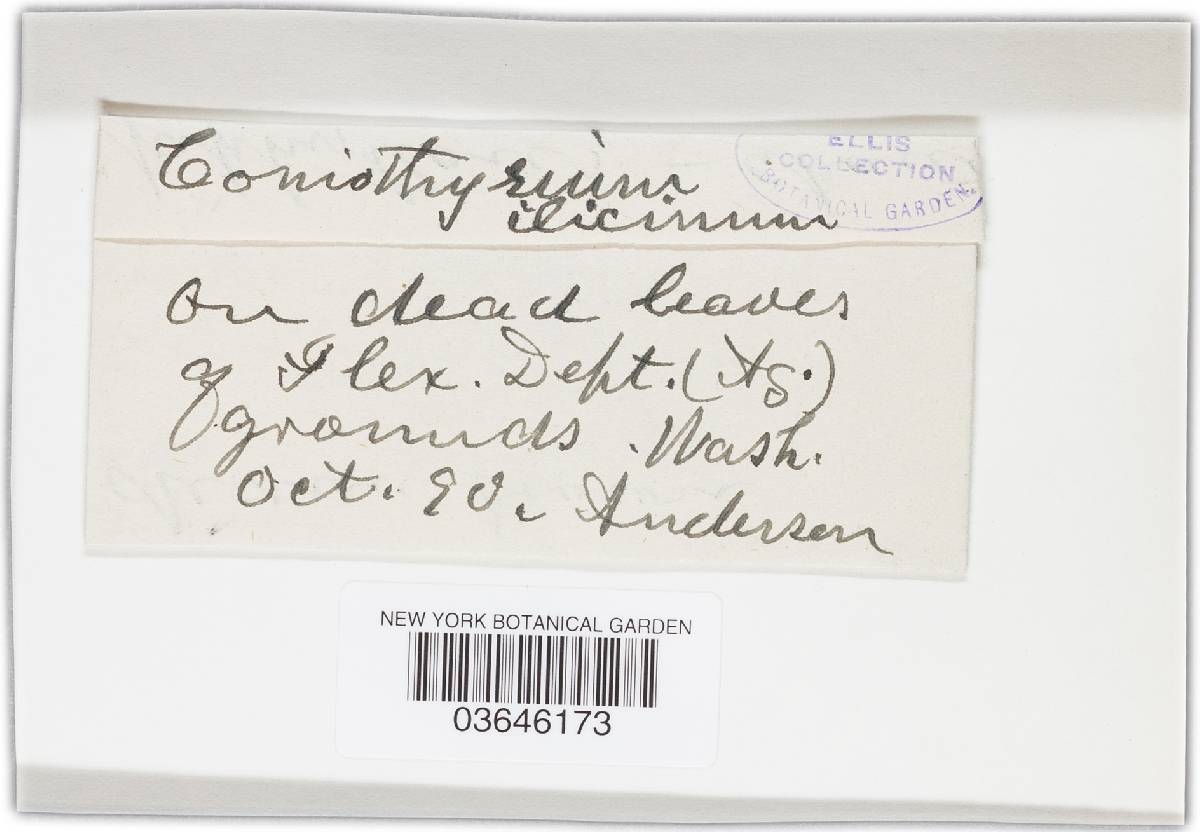 Coniothyrium
ilicinum
ELLIS
COLLECTION
BOTANICAL GARDEN.
on dead leaves
of Ilex. Dept. (Ag.)
grounds. Wash.
Oct. 90. Anderson
NEW YORK BOTANICAL GARDEN
03646173